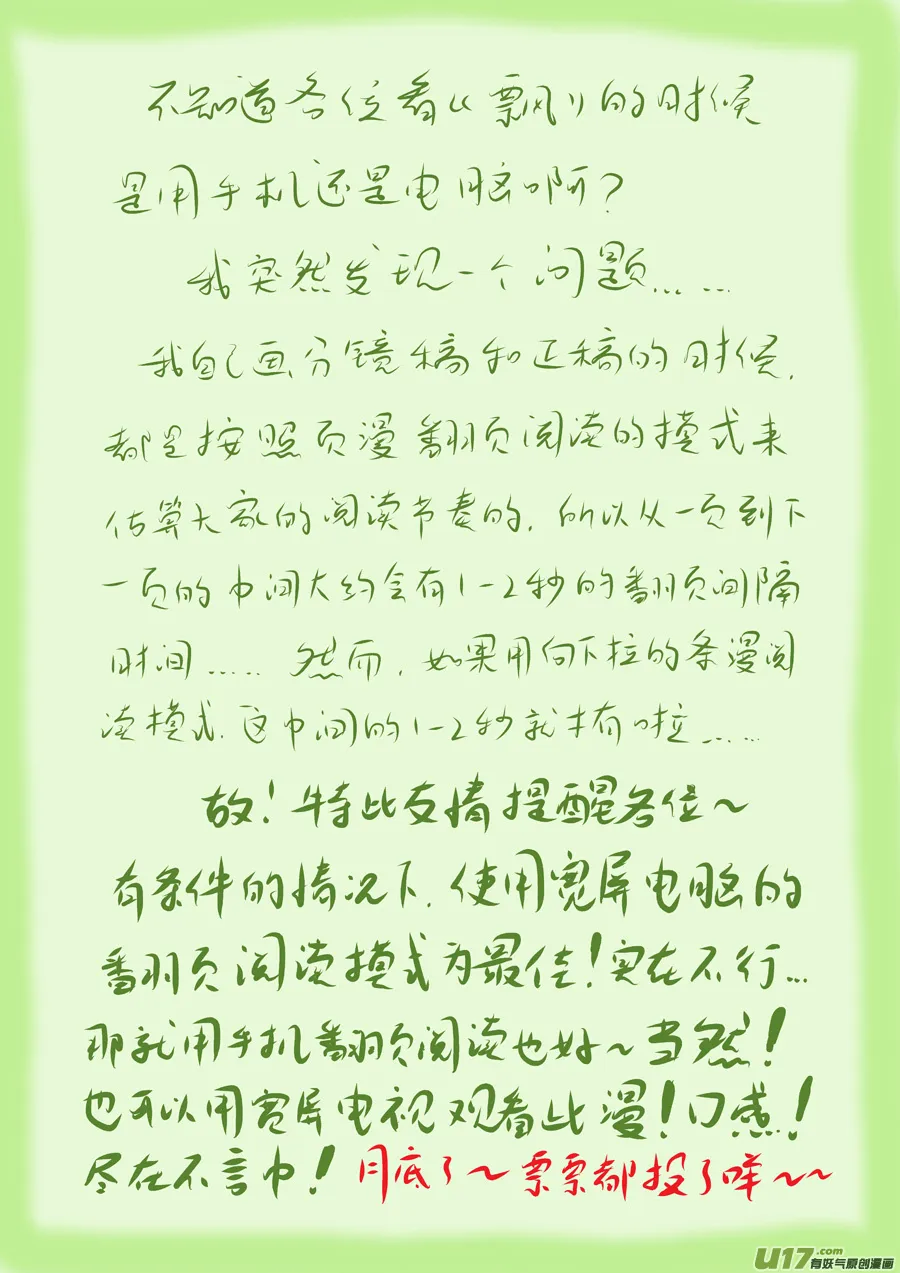 不知道各位看《飘》的时候
是用手机还是电脑啊？
我突然发现一个问题……
我自己画分镜稿和正稿的时候，
都是按照页漫翻页阅读的模式来
估算大家的阅读节奏的，所以从一页到下
一页的中间大约会有1-2秒的翻页间隔
时间……然而，如果用向下拉的条漫阅
读模式，这中间的1-2秒就木有啦……
故！特此友情提醒各位~
有条件的情况下，使用宽屏电脑的
翻页阅读模式为最佳！实在不行…
那就用手机翻页阅读也好~当然！
也可以用宽屏电视观看此漫！口感！
尽在不言中！月底了~票票都投了咩~~
U17.com
有妖气原创漫画